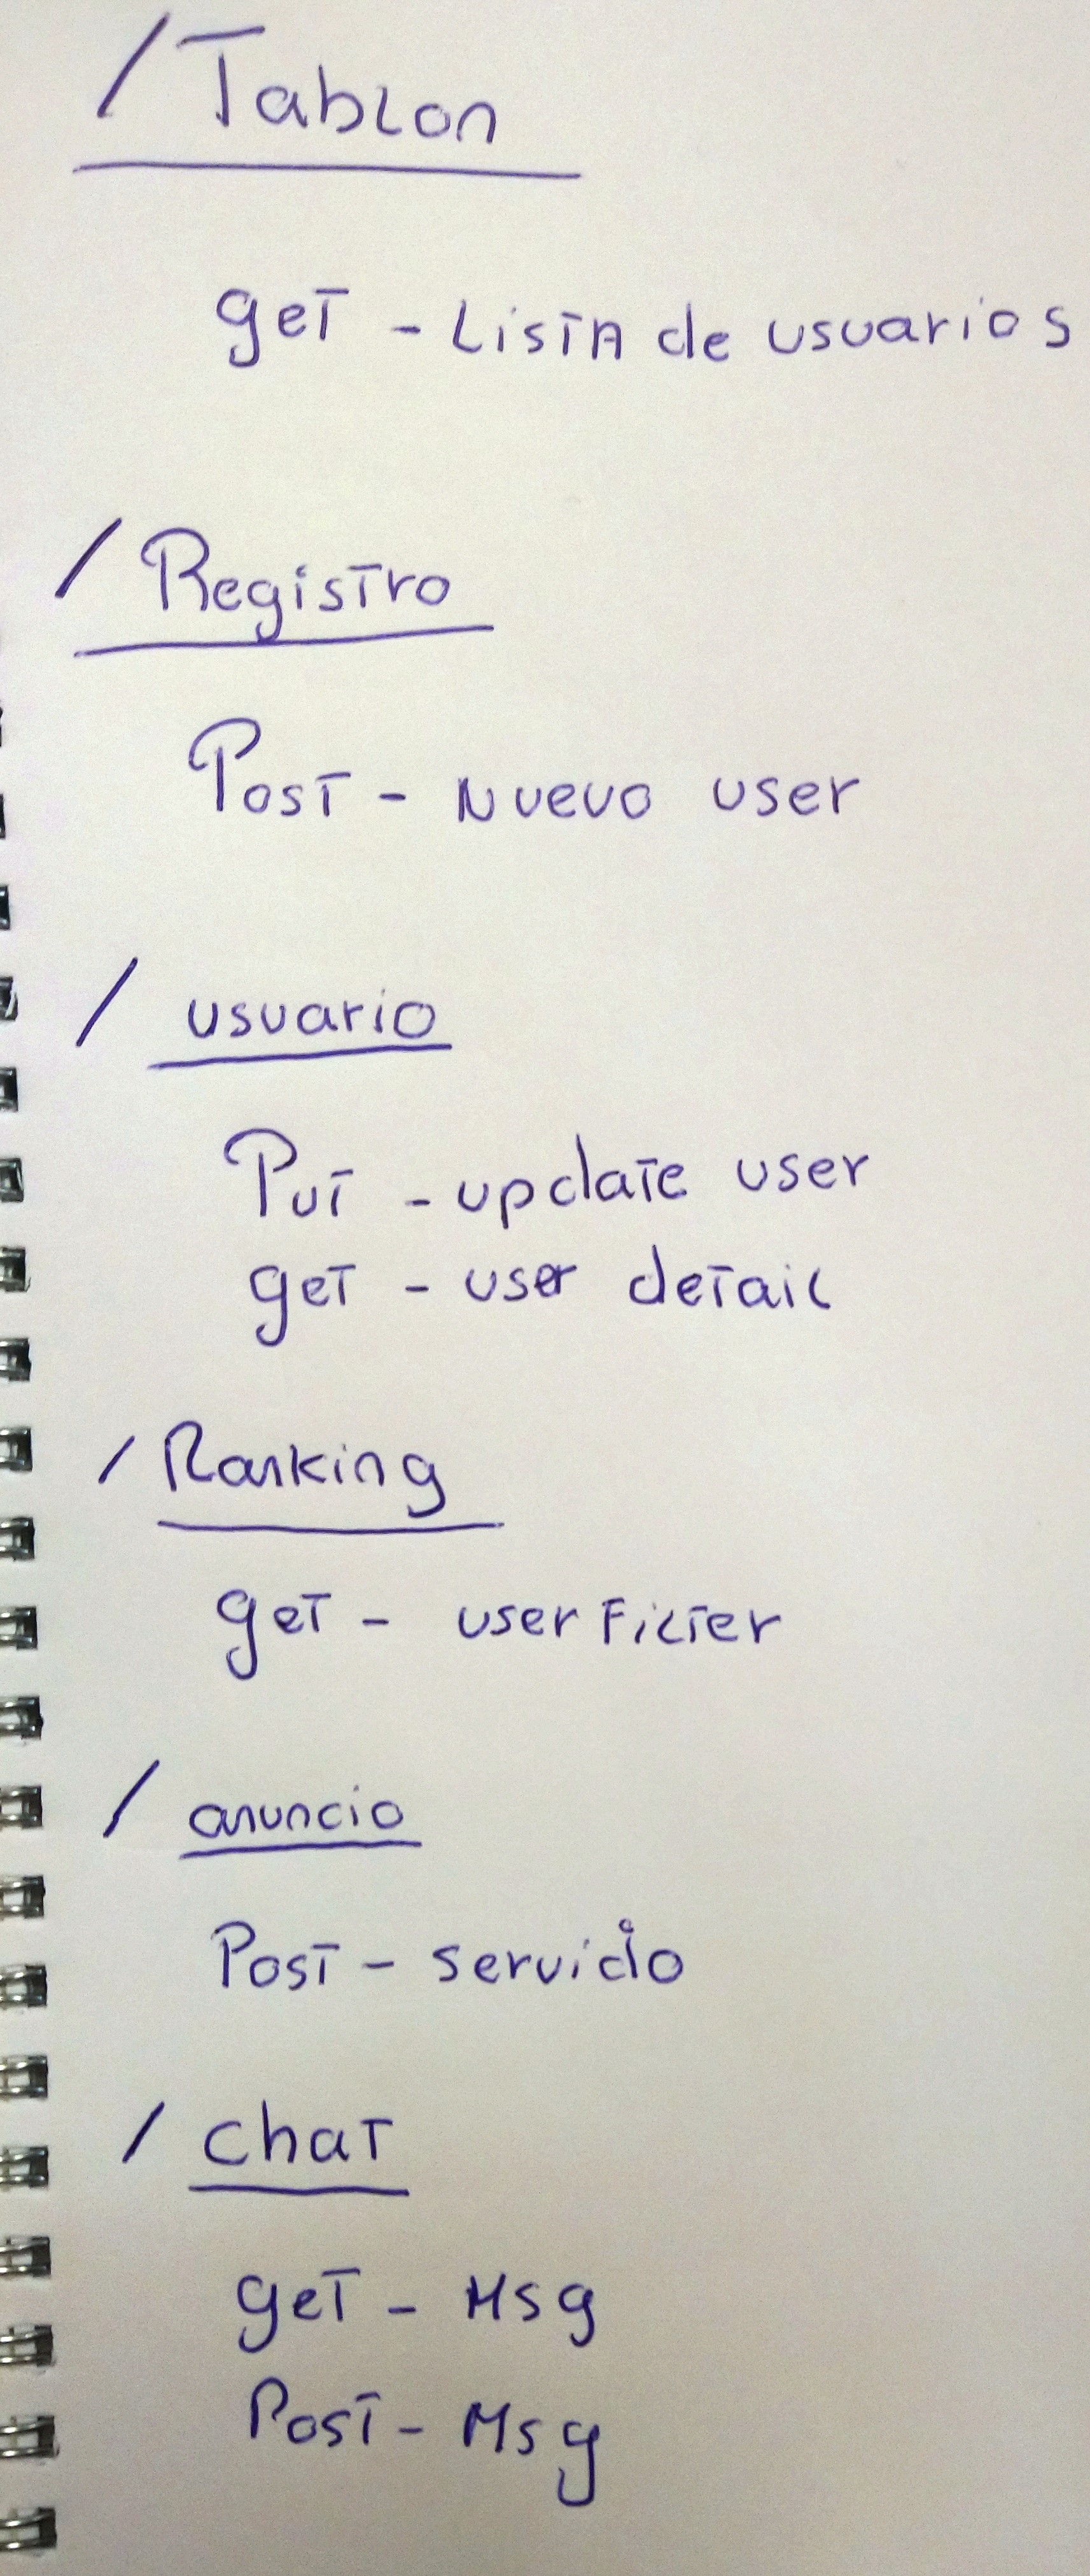 /Tablon
get - Lista de usuarios
/Registro
Post - Nuevo user
/usuario
Put - update user
get - user detail
/Ranking
get - user Filter
/anuncio
Post - servicio
/chat
get - Msg
Post - Msg